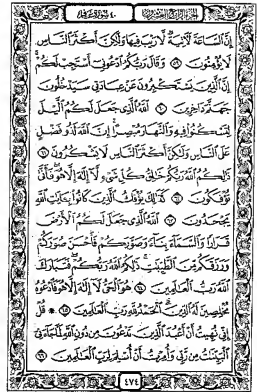 الجزء الرابع والعشرون
٤٠ سورة غافر
إِنَّ ٱلسَّاعَةَ لَءَاتِيَةٌ لَّا رَيْبَ فِيهَا وَلَٰكِنَّ أَكْثَرَ ٱلنَّاسِ
لَا يُؤْمِنُونَ ٥٩ وَقَالَ رَبُّكُمُ ٱدْعُونِىٓ أَسْتَجِبْ لَكُمْ
إِنَّ ٱلَّذِينَ يَسْتَكْبِرُونَ عَنْ عِبَادَتِى سَيَدْخُلُونَ
جَهَنَّمَ دَاخِرِينَ ٦٠ ٱللَّهُ ٱلَّذِى جَعَلَ لَكُمُ ٱلَّيْلَ
لِتَسْكُنُوا۟ فِيهِ وَٱلنَّهَارَ مُبْصِرًا إِنَّ ٱللَّهَ لَذُو فَضْلٍ
عَلَى ٱلنَّاسِ وَلَٰكِنَّ أَكْثَرَ ٱلنَّاسِ لَا يَشْكُرُونَ ٦١
ذَٰلِكُمُ ٱللَّهُ رَبُّكُمْ خَٰلِقُ كُلِّ شَىْءٍ لَّآ إِلَٰهَ إِلَّا هُوَ فَأَنَّىٰ
تُؤْفَكُونَ ٦٢ كَذَٰلِكَ يُؤْفَكُ ٱلَّذِينَ كَانُوا۟ بِـَٔايَٰتِ ٱللَّهِ
يَجْحَدُونَ ٦٣ ٱللَّهُ ٱلَّذِى جَعَلَ لَكُمُ ٱلْأَرْضَ
قَرَارًا وَٱلسَّمَآءَ بِنَآءً وَصَوَّرَكُمْ فَأَحْسَنَ صُوَرَكُمْ
وَرَزَقَكُم مِّنَ ٱلطَّيِّبَٰتِ ذَٰلِكُمُ ٱللَّهُ رَبُّكُمْ فَتَبَارَكَ
ٱللَّهُ رَبُّ ٱلْعَٰلَمِينَ ٦٤ هُوَ ٱلْحَىُّ لَآ إِلَٰهَ إِلَّا هُوَ فَٱدْعُوهُ
مُخْلِصِينَ لَهُ ٱلدِّينَ ٱلْحَمْدُ لِلَّهِ رَبِّ ٱلْعَٰلَمِينَ ٦٥ ۞ قُلْ
إِنِّى نُهِيتُ أَنْ أَعْبُدَ ٱلَّذِينَ تَدْعُونَ مِن دُونِ ٱللَّهِ لَمَّا جَآءَنِىَ
ٱلْبَيِّنَٰتُ مِن رَّبِّى وَأُمِرْتُ أَنْ أُسْلِمَ لِرَبِّ ٱلْعَٰلَمِينَ ٦٦
٤٧٤